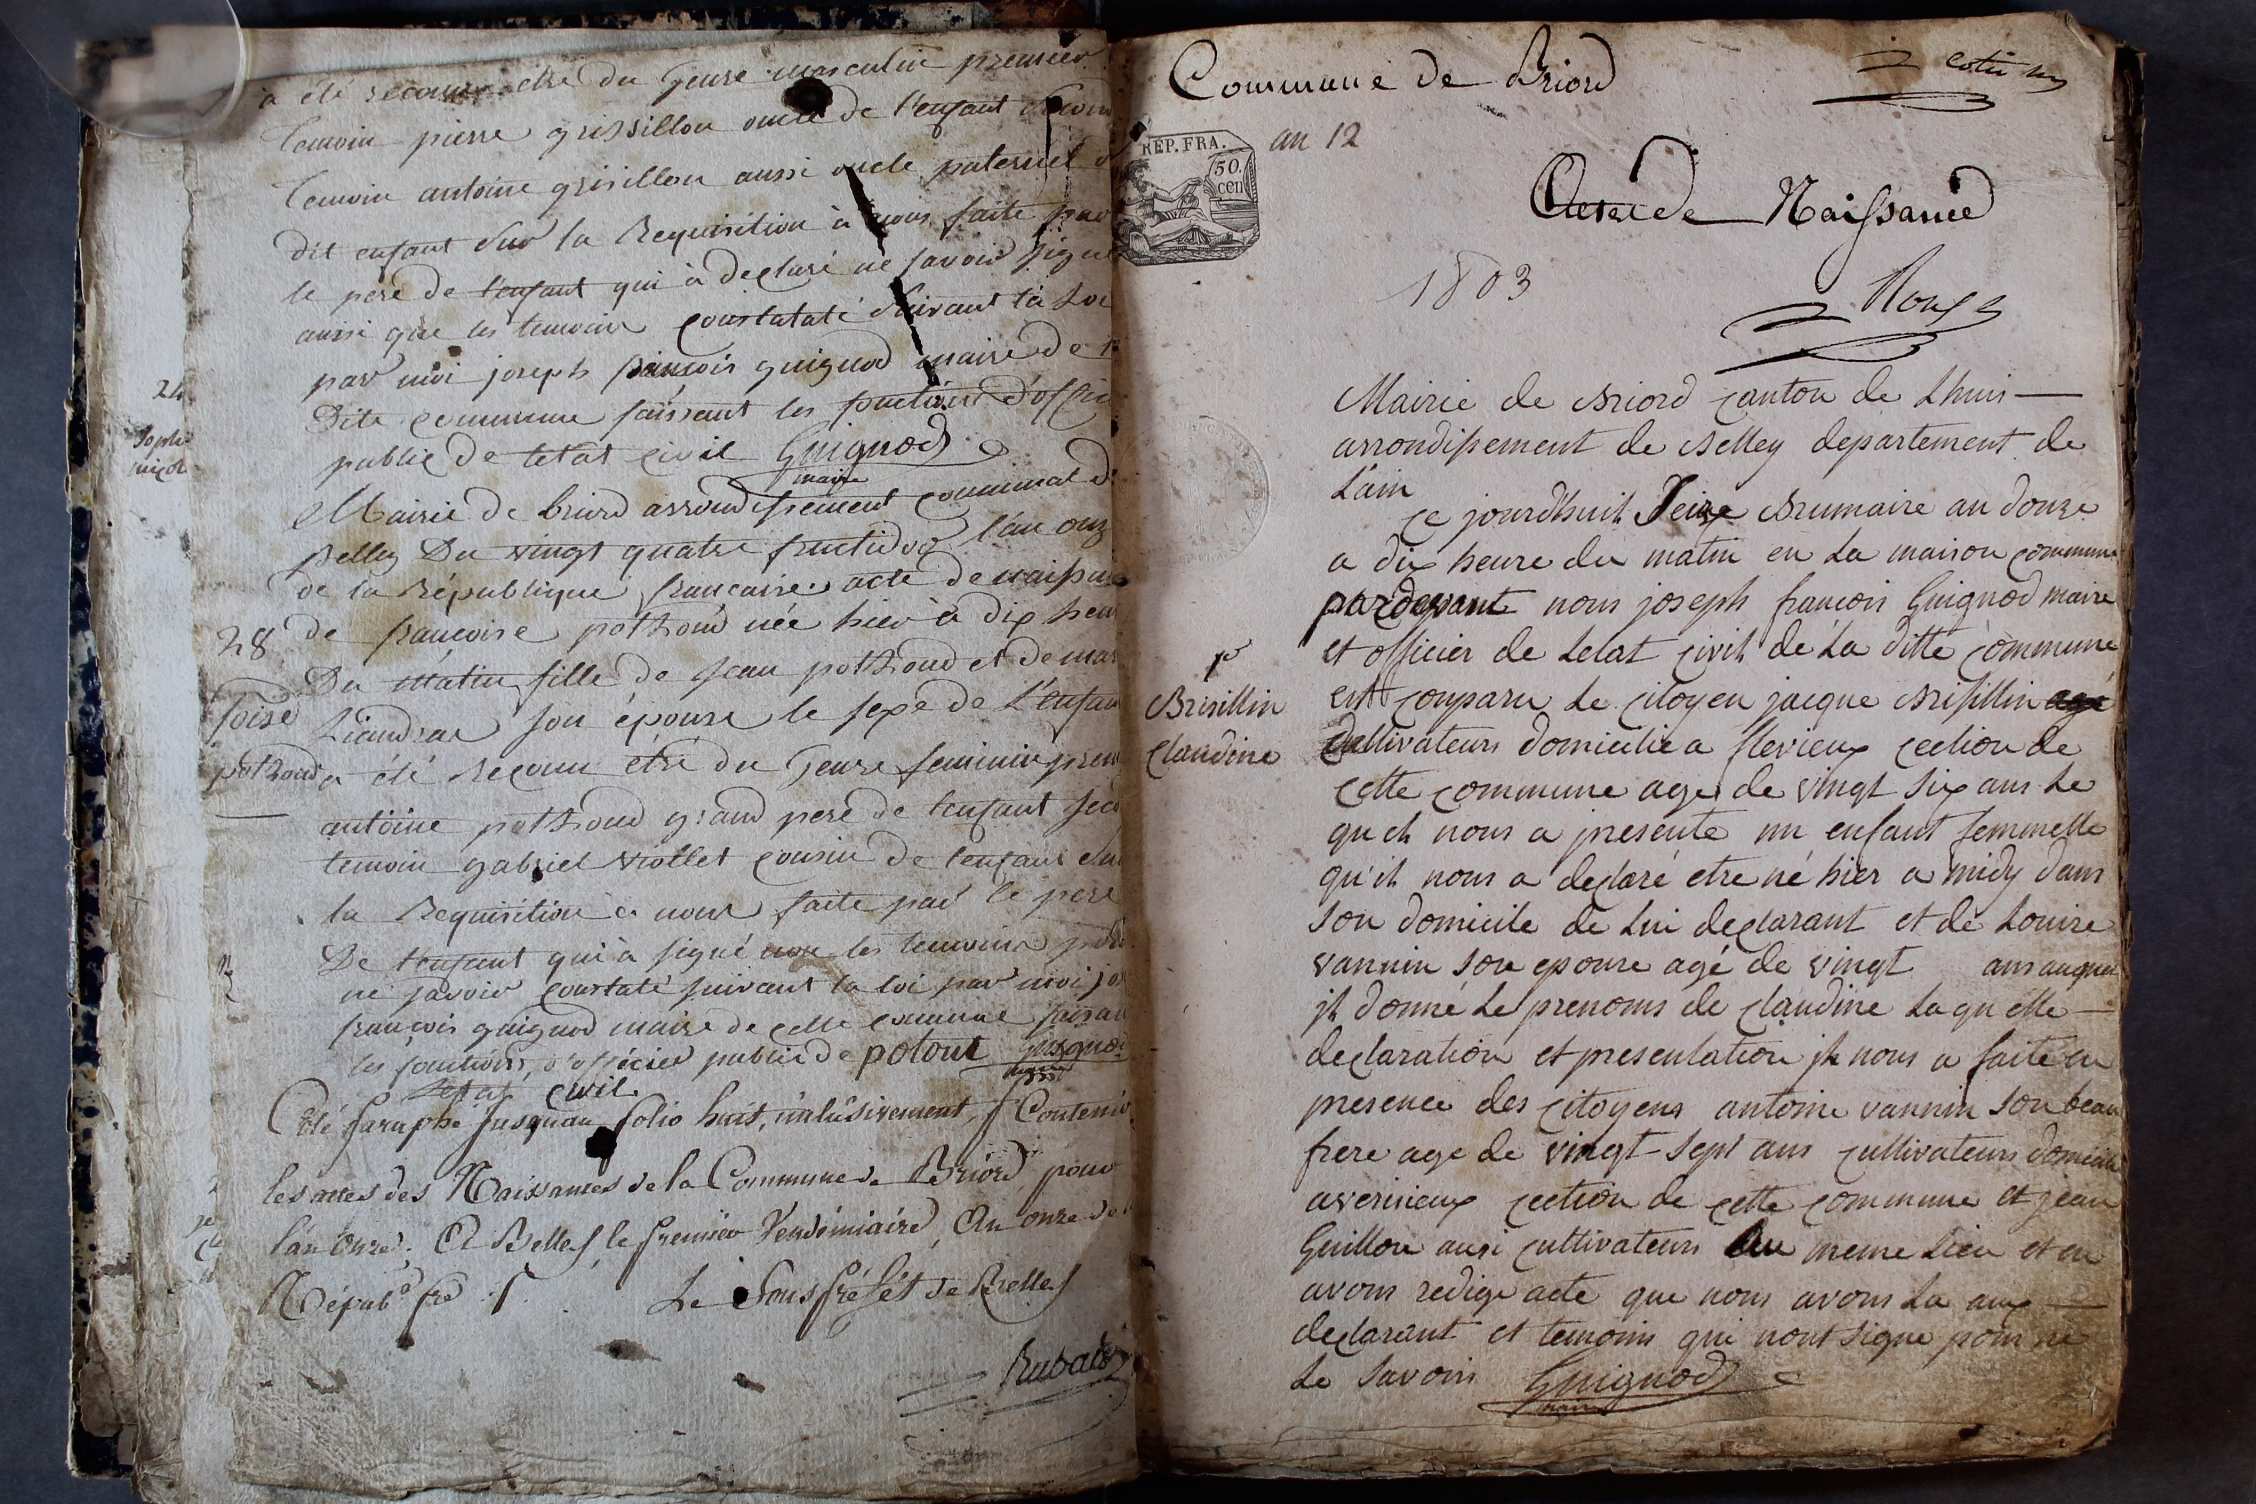 a été reconnu etre du Genre masculin premier
temoin pierre grissillon oncle de l'enfant
temoin antoine grisillon aussi oncle paternel
dit enfant sur la Requisition à nous faite par
le pere de l'enfant qui à declaré ne savoir signé
aussi que les temoins constataté suivant la Loi
par moi joseph francois guignod maire de
dite commune faissant les fonctions d'offici
public de letat civil Guignod
maire
24
Sophi
Mairie de briord arrondissement communal d
Belley Du vingt quatre fructidor l'an onz
de la République francaise acte de naissan
28
de francoise pothoud née hier à dix heur
Du matin fille de Jean pothoud et de mar
foise
pothoud
son épouse le sexe de L'enfan
a été reconu etre du Genre feminin prem
antoine pothoud grand pere de l'enfant sec
temoin gabriel viollet cousin de l'enfant sur
la Requisition à nous faite par le pere
De l'enfant qui à signé non les temoins pour
ne savoir constaté suivant la loi par moi jos
françois guignod maire de cette commune faisan
les fonctions d'officier public de potout guignod
letat civil
Coté Paraphé Jusqu'au folio huit, inclusivement, Contenir
les actes des Naissances de la Commune de Briord, pour
l'an onze. A Belley le premier Vendémiaire, An onze de
Répub.e fr.e
Le Sous préfét de Belley
Rubat
Commune de Briord
REP. FRA.
50
cen
an 12
Acte de Naissance
1803
Roux
Mairie de Briord canton de Lhuis
arrondissement de Belley departement de
L'ain
ce jourdhuit Seize Brumaire an douze
a dix heure du matin en La maison commune
pardevant nous joseph francois Guignod maire
et officier de Letat civil de La ditte commune
1er
Brisillin
Claudine
est comparu Le citoyen jacque Brisillin agé
Cultivateurs domicilie a flevieux cection de
cette commune age de vingt six ans Le
quel nous a presente un enfant femmelle
qu'il nous a declaré etre né hier a midy dans
son domicile de Lui declarant et de Louise
vannin son epouse agé de vingt ans auquel
il donné Le prenoms de claudine Laquelle
declaration et presentation il nous a faite en
presence des citoyens antoine vannin son beau
frere age de vingt-sept ans cultivateurs domicile
a verinieux cection de cette commune et jean
Guillon ausi cultivateurs du meme Lieu et en
avons redige acte que nous avons La aux
declarant et temoins qui nont signe pour ne
Le savoir Guignod
maire